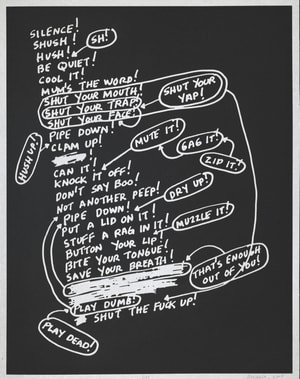 SILENCE!
SHUSH!
SH!
HUSH!
BE QUIET!
COOL IT!
MUM'S THE WORD!
SHUT YOUR MOUTH!
SHUT YOUR TRAP!
SHUT YOUR FACE!
SHUT YOUR
YAP!
PIPE DOWN!
CLAM UP!
HUSH UP!
MUTE IT!
GAG IT!
ZIP IT!
CAN IT!
KNOCK IT OFF!
DON'T SAY BOO!
NOT ANOTHER PEEP!
DRY UP!
PIPE DOWN!
PUT A LID ON IT!
STUFF A RAG IN IT!
MUZZLE IT!
BUTTON YOUR LIP!
BITE YOUR TONGUE!
SAVE YOUR BREATH!
THAT'S ENOUGH
OUT OF YOU!
PLAY DUMB!
SHUT THE FUCK UP!
PLAY DEAD!